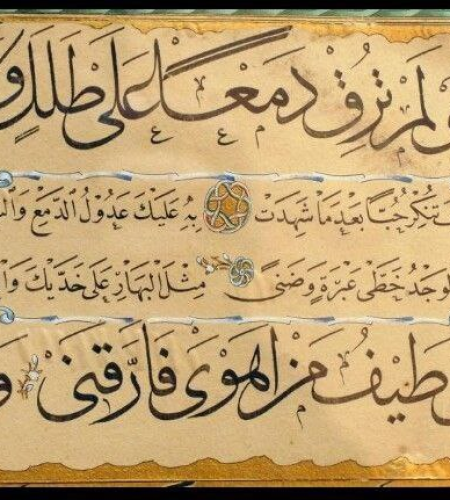 لم ترق دمعا على طلل و
تنكر حبا بعد ما شهدت به عليك عدول الدمع وال
لوجد خطي عبرة وضنى مثل البهار على خديك وال
طيف من اهوى فارقني و